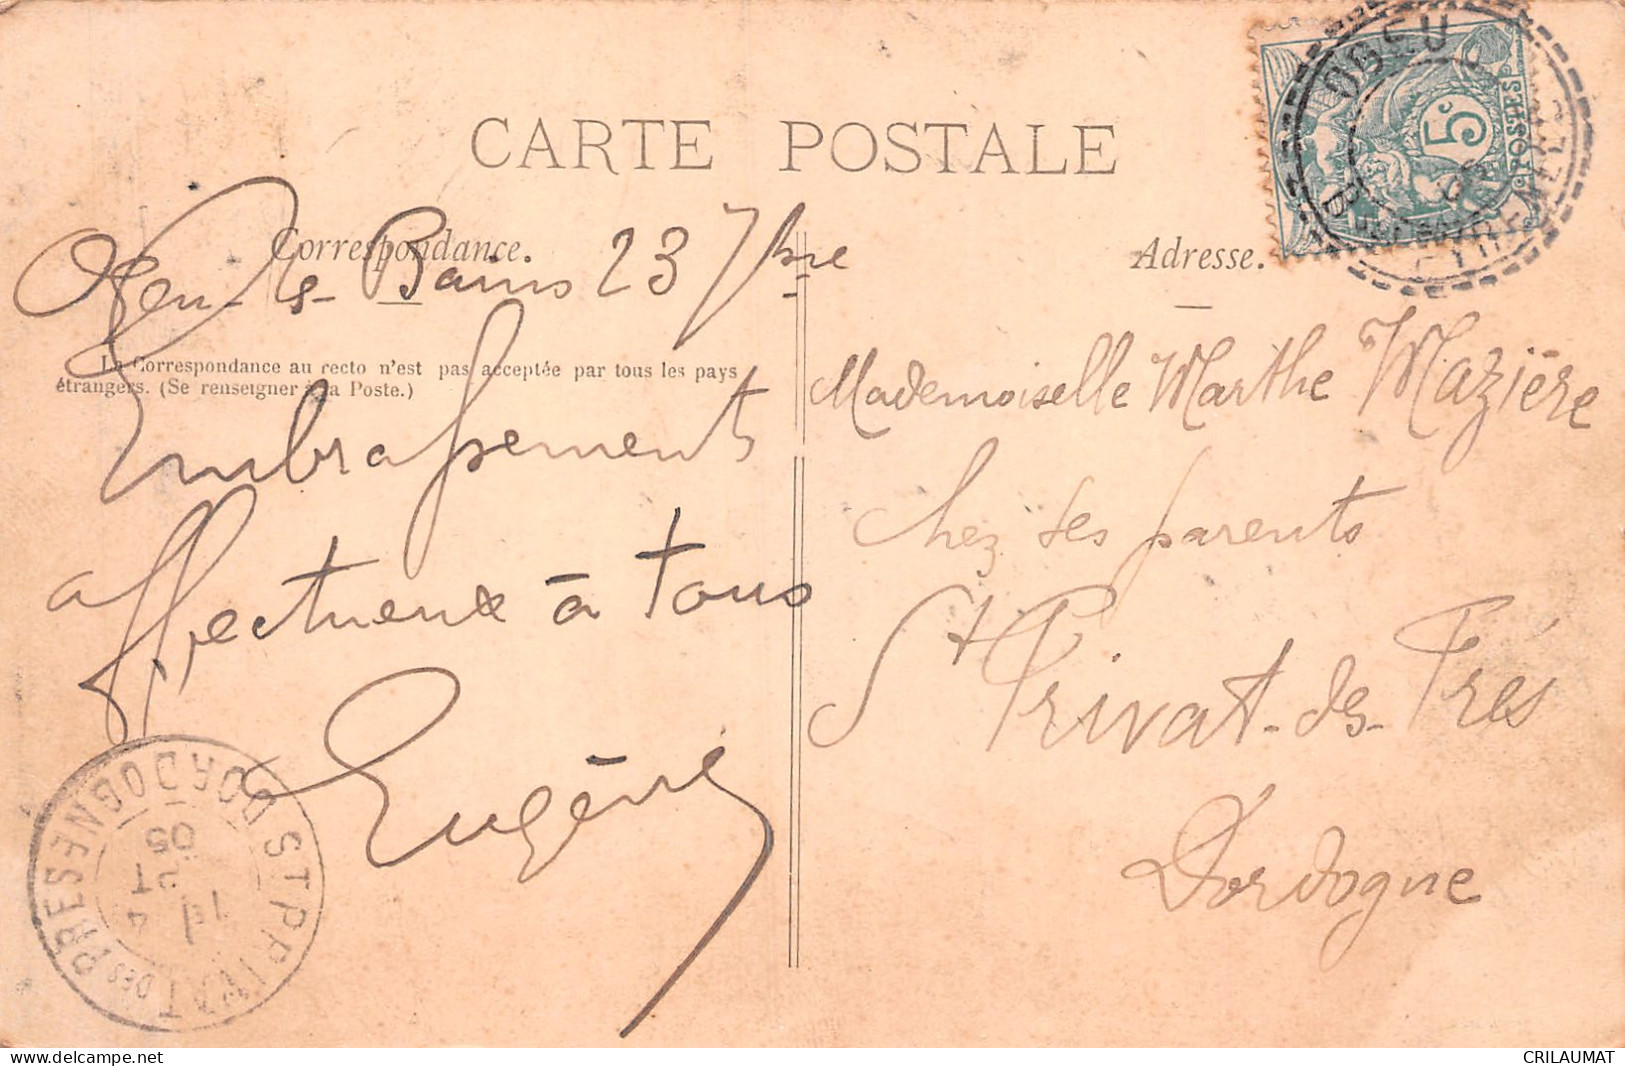 CARTE POSTALE
Correspondance.
Adresse.
Ogeu-les-Bains 23 7bre
La Correspondance au recto n'est pas acceptée par tous les pays
étrangers. (Se renseigner à la Poste.)
Embrassements
affectueux à tous
Eugène
Mademoiselle Marthe Mazière
chez ses parents
St Privat-des-Prés
Dordogne
5c
POSTES
OGEU
ST PRIVAT DES PRES DORDOGNE
05
CRILAUMAT